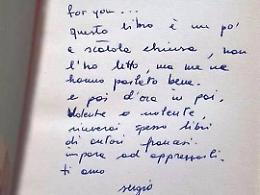 for you...
questo libro è un po'
a scatola chiusa, non
l'ho letto, ma me ne
hanno parlato bene.
e poi d'ora in poi,
volente o nolente,
riceverai spesso libri
di autori francesi.
impara ad apprezzarli.
ti amo
sergio